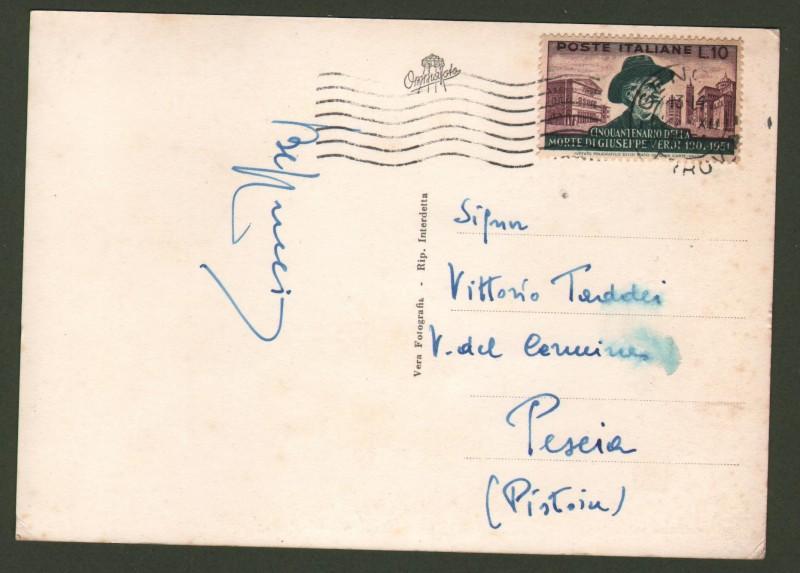 Omniafoto
POSTE ITALIANE L.10
CINQUANTENARIO DELLA
MORTE DI GIUSEPPE VERDI 1901-1951
Vera Fotografia - Rip. Interdetta
Signor
Vittorio Taddei
V. del Carmine
Pescia
(Pistoia)